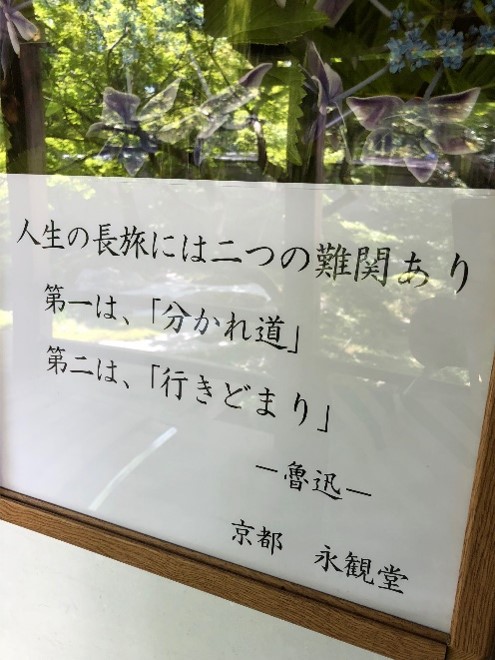 人生の長旅には二つの難関あり
第一は、「分かれ道」
第二は、「行きどまり」
―魯迅―
京都　永観堂